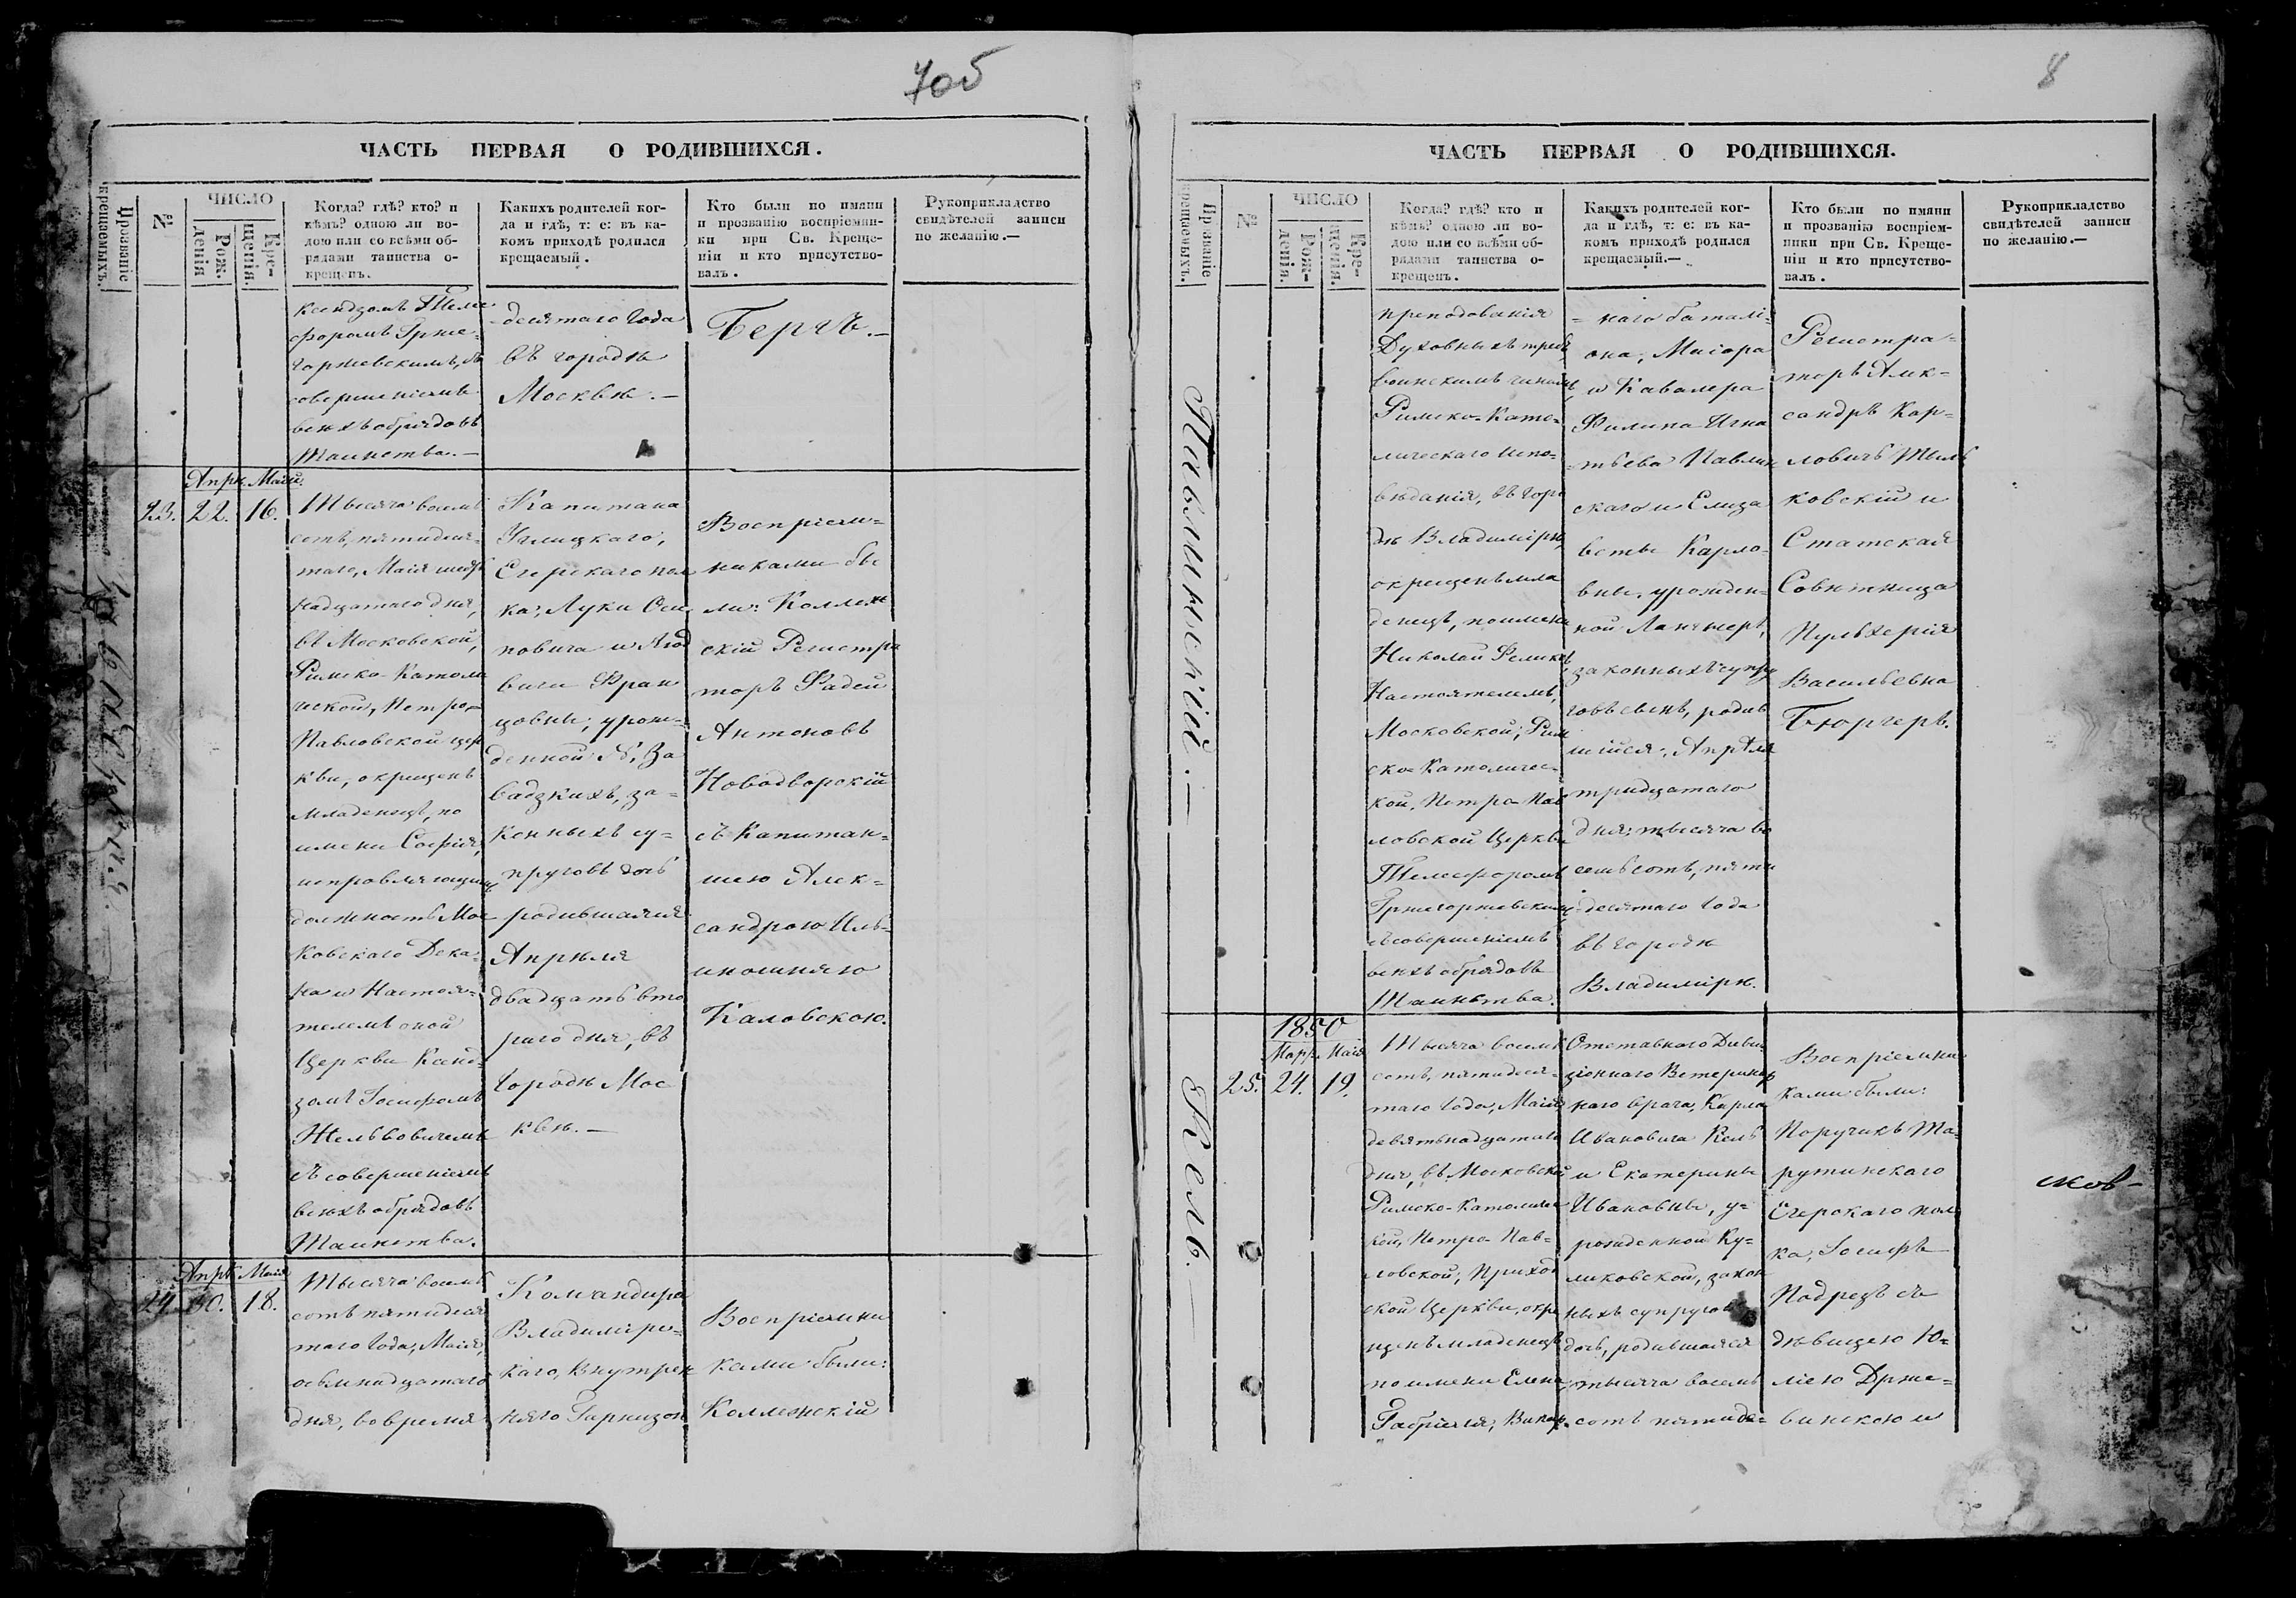 7об
ЧАСТЬ ПЕРВАЯ О РОДИВШИХСЯ.
Прозваніе
крещаемыхъ.
№
ЧИСЛО
Рож-
денія
Кре-
щенія.
Когда? гдѣ? кто? и
кѣмъ? одною ли во-
дою или со всѣми об-
рядами таинства о-
крещенъ.
Какихъ родителей ког-
да и гдѣ, т: е: въ ка-
комъ приходѣ родился
крещаемый.
Кто были по имяни
и прозванію воспріемни-
ки при Св. Креще-
ніи и кто присутство-
валъ.
Рукоприкладство
свидѣтелей записи
по желанію.—
ксендзомъ Теле
сфоромъ Грже-
горжевскимъ, съ
совершеніемъ
всѣхъ обрядовъ
Таинства.—
десятаго Года
въ городѣ
Москвѣ.—
Бергъ.—
Апрѣ. Маій.
23. 22. 16.
Тысяча восемь
сотъ, пятидеся-
таго, Маія шест
надцатаго дня,
въ Московской,
Римско-Католи
ческой, Петро-
Павловской цер
кви, окрещенъ
младенецъ, по
имени Софія,
исправляющимъ
должность Мос
ковскаго Дека-
на и Настоя-
телемъ оной
Церкви Ксен-
зомъ Іосифомъ
Жельвовичемъ
съ совершеніемъ
всѣхъ обрядовъ
Таинства.
Капитана
Углицкаго,
Егерскаго пол
ка; Луки Оси
повича и Люд
вики Фран
цовны, урож-
денной N, За
вадзкихъ, за-
конныхъ су-
пруговъ дочь
родившаяся
Апрѣля
двадцать вто
раго дня, въ
Городѣ Мос
квѣ.—
Воспріем-
никами бы
ли: Коллеж
скій Регистра
торъ Фадей
Антоновъ
Новодворскій
съ Капитан-
шею Алек-
сандрою Иль-
инишною
Каловскою.
Апрѣ. Маія
24. 30. 18.
Тысяча восемь
сотъ пятидеся
таго Года, Маія,
осьмнадцатаго
дня, во время
Командира
Владимірс-
каго, Внутрен
няго Гарнизон
Воспріемни
ками были:
Коллежскій
8
ЧАСТЬ ПЕРВАЯ О РОДИВШИХСЯ.
Прозваніе
крещаемыхъ.
№
ЧИСЛО
Рож-
денія.
Кре-
щенія.
Когда? гдѣ? кто и
кѣмъ? одною ли во-
дою или со всѣми об-
рядами таинства о-
крещенъ.
Какихъ родителей ког-
да и гдѣ, т: е: въ ка-
комъ приходѣ родился
крещаемый.—
Кто были по имяни
и прозванію воспріем-
ники при Св. Креще-
ніи и кто присутство-
валъ.
Рукоприкладство
свидѣтелей записи
по желанію.—
Павлинскій.—
преподованія
Духовныхъ требъ
воинскимъ чинамъ
Римско-Като-
лическаго Испо-
вѣданія, въ Горо
дѣ Владимірѣ,
окрещенъ мла
денецъ, по имени
Николай Феликсъ,
Настоятелемъ,
Московской, Рим
ско-Католичес-
кой, Петро-Пав
ловской Церкви
Телесфоромъ
Гржегоржевскимъ
съ совершеніемъ
всѣхъ обрядовъ
Таинства.
-наго баталі-
она, Маіора
и Кавалера
Филипа Игна
тьева Павлин
скаго и Елиза
веты Карло-
вны, урожден-
ной Лангнеръ,
законныхъ супру
говъ сынъ, родив
шійся, Апрѣля
тридцатаго
дня, тысяча во
семь сотъ, пяти
десятаго Года
въ городѣ
Владимірѣ.
Регистра-
торъ Алек-
сандръ Кар-
ловичъ
ковскій и
Статская
Совѣтница
Пульхерія
Васильевна
Бюргеръ.
Кель.—
1850
Марр. Маія
25. 24. 19.
Тысяча восемь
сотъ, пятидеся-
таго Года, Маія
девятьнадцатаго
дня, въ Московской
Римско-Католичес
кой, Петро-Пав-
ловской, Приход
ской Церкви, окре
щенъ младенецъ
по имени Елена
Габріеля, Викар.
Отставнаго Диви-
зіоннаго Ветеринар
наго врача, Карла
Ивановича Кель
и Екатерины
Ивановны, у-
рожденной Ку-
ликовской, закон
ныхъ супруговъ
дочь, родившаяся
тысяча восемь
сотъ пятиде-
Воспріемни
ками были:
Поручикъ Та-
рутинскаго
Егерскаго пол
ка, Іосифъ
Подрезъ съ
дѣвицею Ю-
ліею Држе-
винскою и